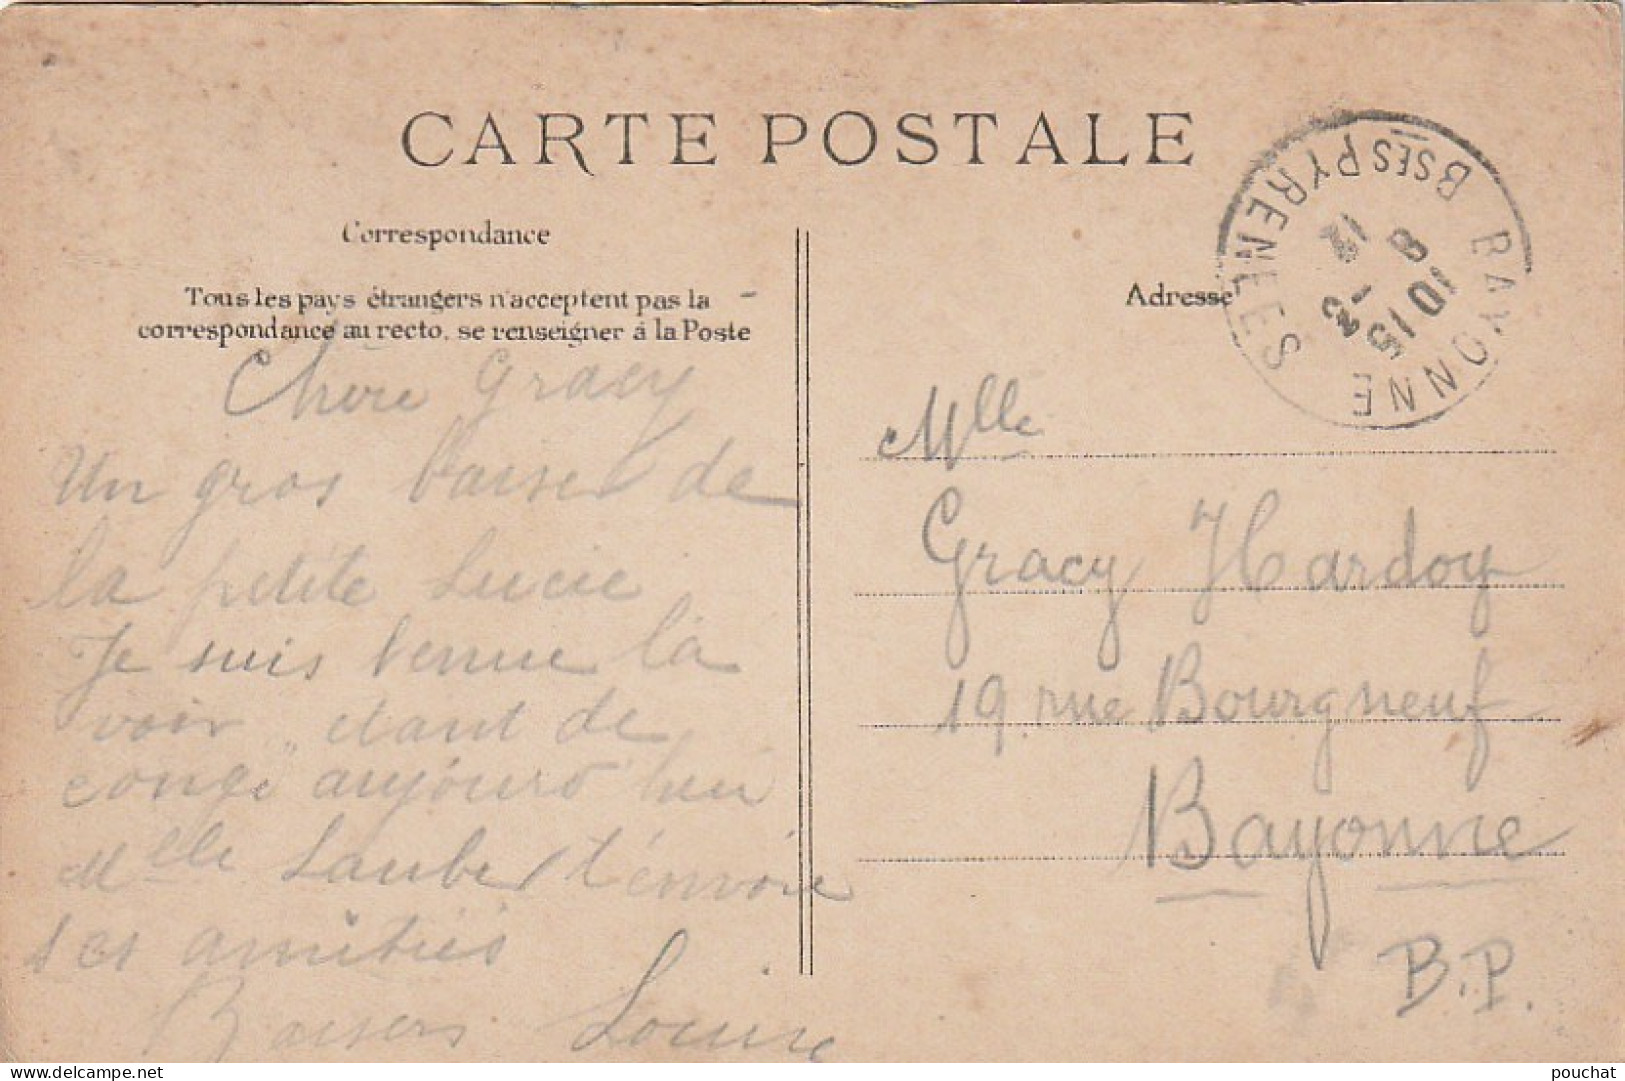 CARTE POSTALE
Correspondance
Tous les pays étrangers n'acceptent pas la
correspondance au recto, se renseigner à la Poste
Chère Gracy
Un gros baiser de
la petite Lucie
Je suis venue la
voir, étant de
congé aujourd'hui
Mlle Laubes t'envoie
ses amitiés
Baisers Louise
Adresse
Mlle
Gracy Hardoy
19 rue Bourgneuf
Bayonne
B.P.
BAYONNE
BSES PYRENEES
8
10 15
2 - 12
delcampe.net
pouchat